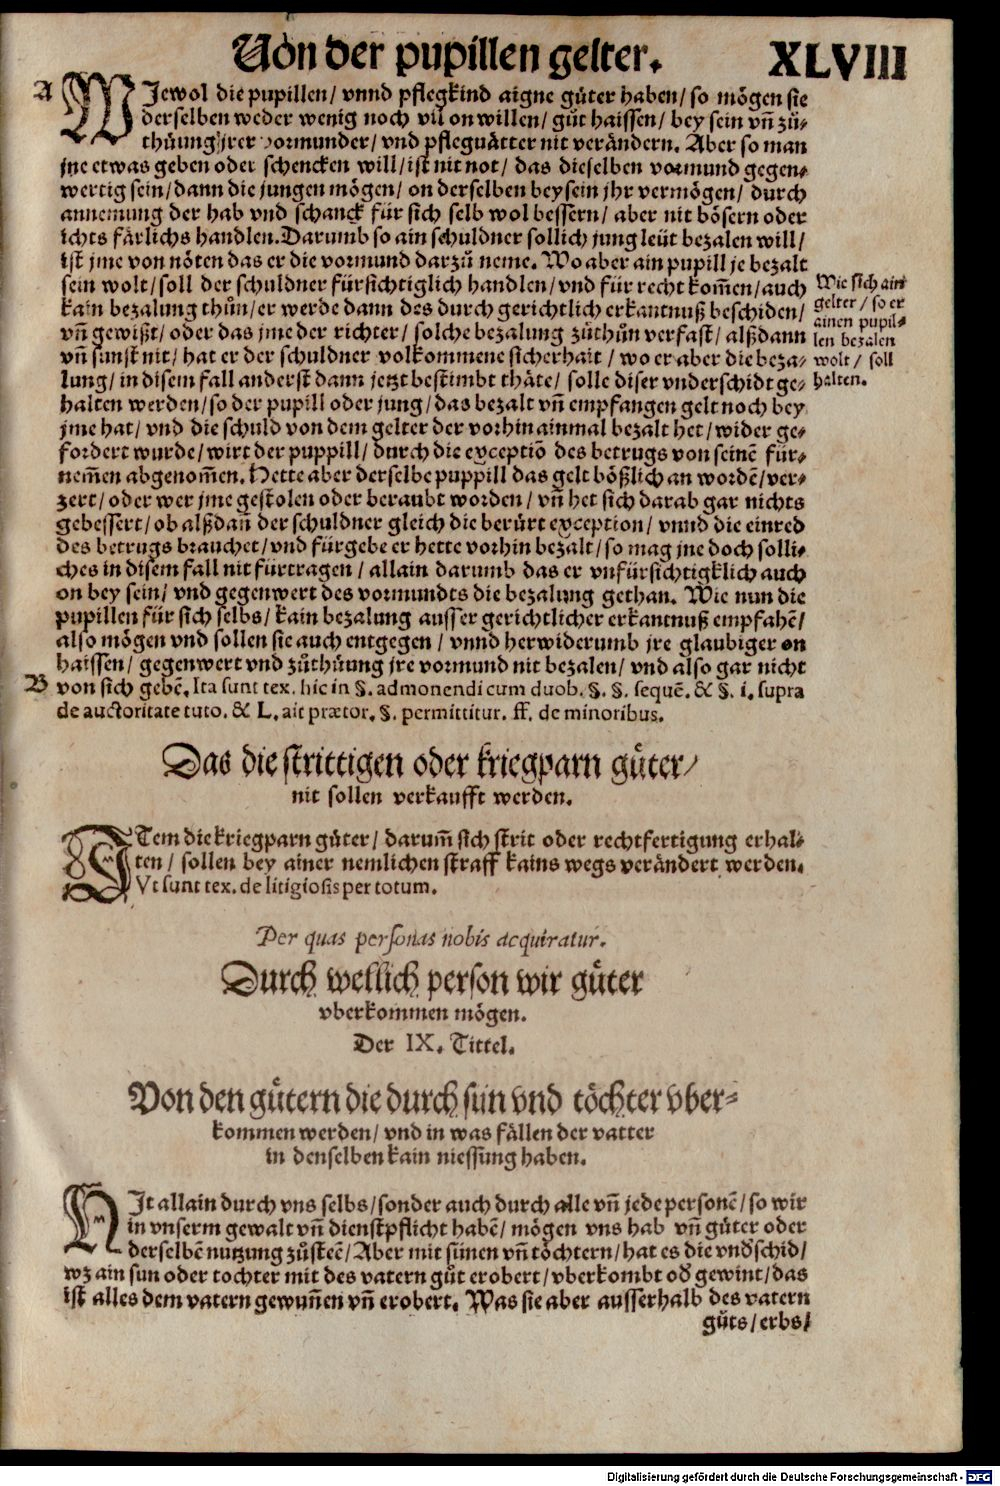 Von der pupillen gelter. XLVIII
A WJewol die pupillen / vnnd pflegkind aigne gůter haben / so mögen sie
derselben weder wenig noch vil on willen / gůt haissen / bey sein vñ zů-
thůung jrer vormunder / vnd pflegvätter nit verändern. Aber so man
jne etwas geben oder schencken will / ist nit not / das dieselben vormund gegen-
wertig sein / dann die jungen mögen / on derselben beysein jhr vermögen / durch
annemung der hab vnd schanck für sich selb wol bessern / aber nit bösern oder
ichts färlichs handlen. Darumb so ain schuldner sollich jung leüt bezalen will /
ist jme von nöten das er die vormund darzů neme. Wo aber ain pupill je bezalt
sein wolt / soll der schuldner fürsichtiglich handlen / vnd für recht kom̃en / auch
kain bezalung thůn / er werde dann des durch gerichtlich erkantnuß beschiden /
vñ gewißt / oder das jme der richter / solche bezalung zůthůn verfast / alßdann
vñ sunst nit / hat er der schuldner volkommene sicherhait / wo er aber die beza-
lung / in disem fall anderst dann jetzt bestimbt thäte / solle diser vnderschidt ge-
halten werden / so der pupill oder jung / das bezalt vñ empfangen gelt noch bey
jme hat / vnd die schuld von dem gelter der vorhin ainmal bezalt het / wider ge-
fordert wurde / wirt der puppill / durch die exceptiõ des betrugs von seinẽ für-
nem̃en abgenom̃en. Hette aber derselbe puppill das gelt bößlich an wordẽ / ver-
zert / oder wer jme gestolen oder beraubt worden / vñ het sich darab gar nichts
gebessert / ob alßdañ der schuldner gleich die berůrt exception / vnnd die einred
des betrugs brauchet / vnd fürgebe er hette vorhin bezalt / so mag jne doch solli-
ches in disem fall nit fürtragen / allain darumb das er vnfürsichtigklich auch
on bey sein / vnd gegenwert des vormundts die bezalung gethan. Wie nun die
pupillen für sich selbs / kain bezalung ausser gerichtlicher erkantnuß empfahẽ /
also mögen vnd sollen sie auch entgegen / vnnd herwiderumb jre glaubiger on
haissen / gegenwert vnd zůthůung jre vormund nit bezalen / vnd also gar nicht
B von sich gebẽ. Ita sunt tex. hic in §. admonendi cum duob. §. §. sequẽ. & §. i. supra
de auctoritate tuto. & L. ait prætor. §. permittitur. ff. de minoribus.
Wie sich ain
gelter / so er
ainen pupil-
len bezalen
wolt / soll
halten.
Das die strittigen oder kriegparn gůter /
nit sollen verkaufft werden.
ITem die kriegparn gůter / darum̃ sich strit oder rechtfertigung erhal-
ten / sollen bey ainer nemlichen straff kains wegs verändert werden.
Vt sunt tex. de litigiosis per totum.
Per quas personas nobis acquiratur.
Durch wellich person wir gůter
vberkommen mögen.
Der IX. Tittel.
Von den gůtern die durch sün vnd töchter vber-
kommen werden / vnd in was fällen der vatter
in denselben kain niessung haben.
NIt allain durch vns selbs / sonder auch durch alle vñ jede personẽ / so wir
in vnserm gewalt vñ dienstpflicht habẽ / mögen vns hab vñ gůter oder
derselbẽ nutzung zůsteẽ / Aber mit sünen vñ töchtern / hat es die vnd'schid /
wz ain sun oder tochter mit des vatern gůt erobert / vberkombt od' gewint / das
ist alles dem vatern gewuñen vñ erobert. Was sie aber ausserhalb des vatern
gůts / erbs /
Digitalisierung gefördert durch die Deutsche Forschungsgemeinschaft - DFG